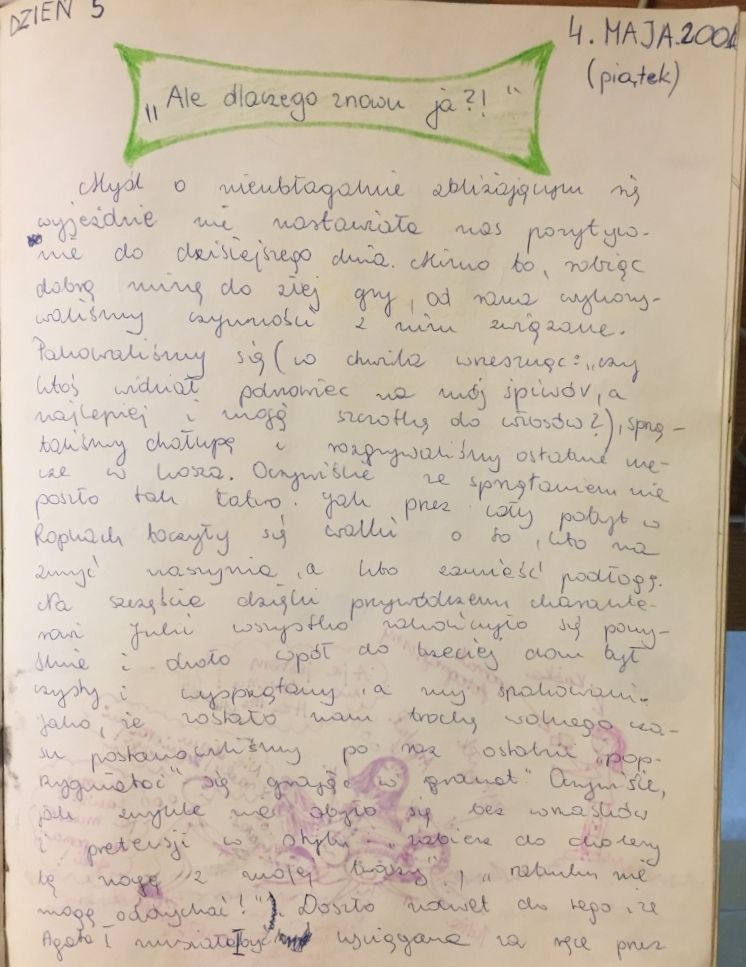 DZIEŃ 5
4. MAJA.2001
(piątek)
„Ale dlaczego znowu ja?!"
Myśl o nieubłaganie zbliżającym się
wyjeździe nie nastawiała nas pozytyw-
nie do dzisiejszego dnia. Mimo to, robiąc
dobrą minę do złej gry, od rana wykony-
waliśmy czynności z nim związane.
Pakowaliśmy się (co chwila wrzeszcząc: „czy
ktoś widział pokrowiec na mój śpiwór, a
najlepiej i moją szczotkę do włosów?), sprzą-
taliśmy chałupę i rozgrywaliśmy ostatnie me-
cze w kosza. Oczywiście ze sprzątaniem nie
poszło tak łatwo. Jak przez cały pobyt w
Ropkach toczyły się walki o to, kto ma
zmyć naczynia, a kto zamieść podłogę.
Na szczęście dzięki przywódczemu charakte-
rowi Julii wszystko zakończyło się pomy-
ślnie i około wpół do trzeciej dom był
czysty i wysprzątany a my spakowani.
Jako, że zostało nam trochę wolnego cza-
su postanowiliśmy po raz ostatni „
się grając w „granat". Oczywiście,
jak zwykle nie obyło się bez wrzasków
i pretensji w stylu „zabierz do cholery
tę nogę z mojej twarzy", „ratunku nie
mogę oddychać!"). Doszło nawet do tego, że
Agata Ł musiała być wyciągana za ręce przez